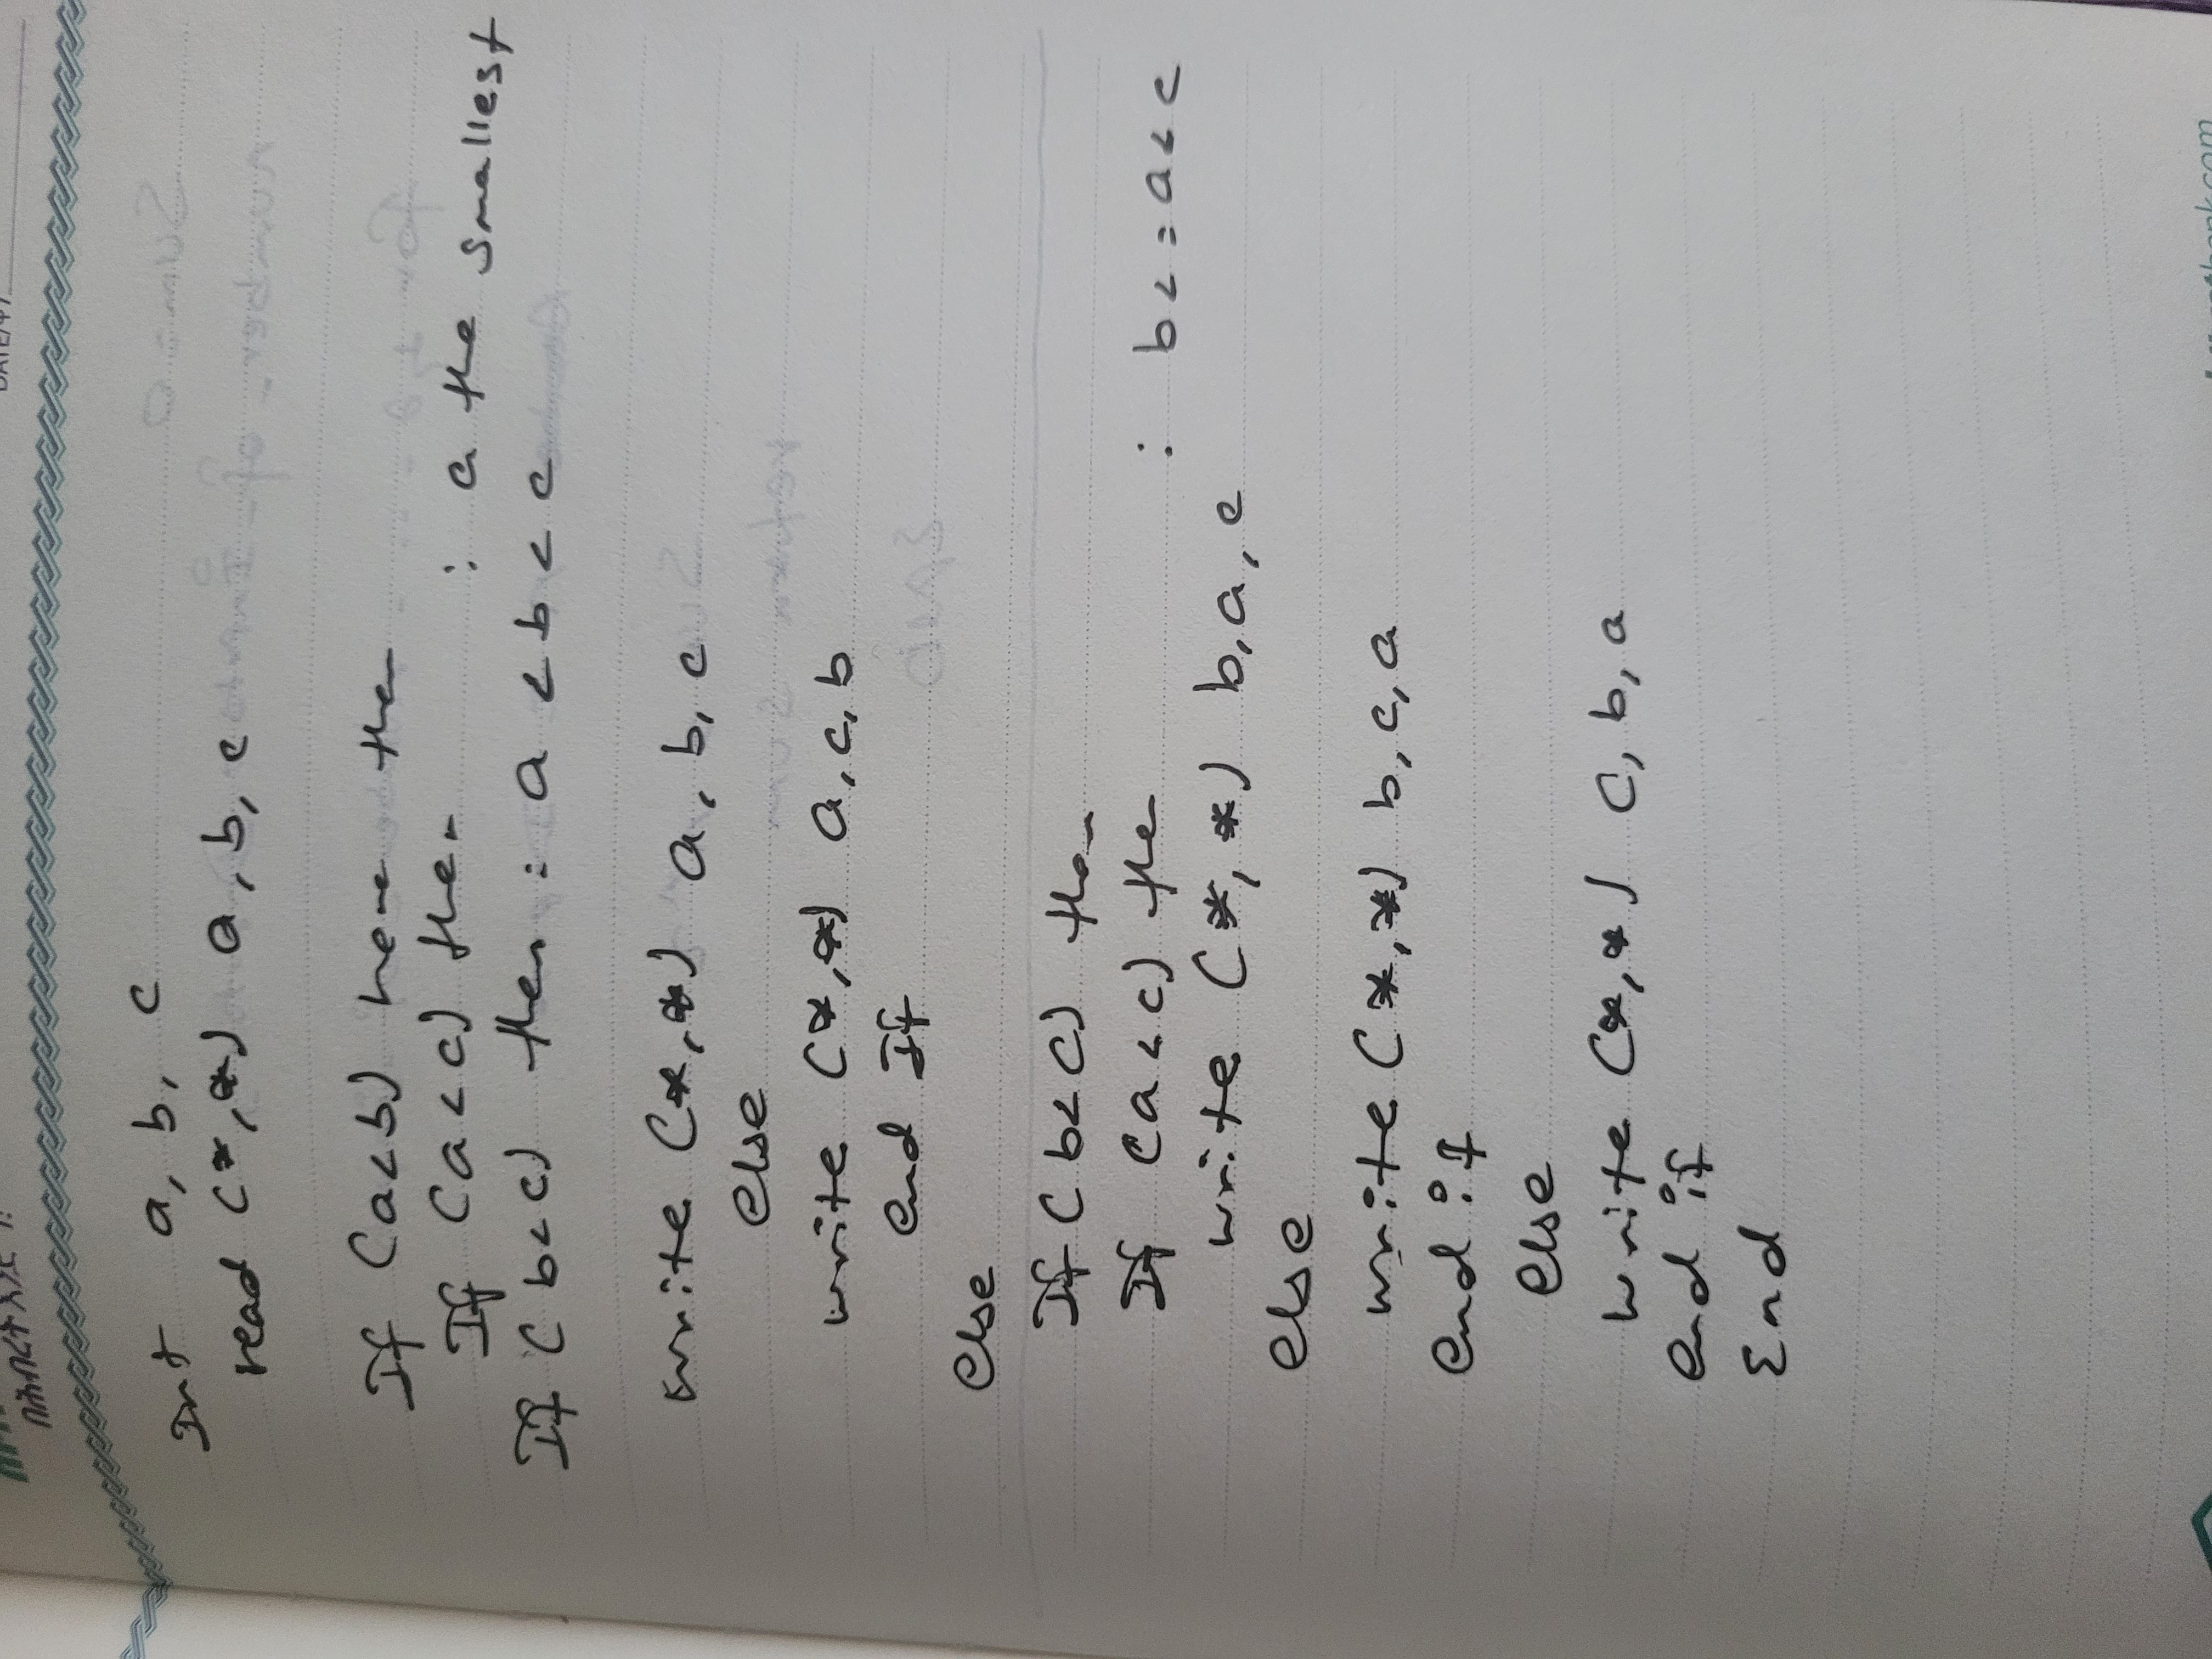 በሕብረት እንደ
DATE/ቀን
Int a, b, c
read (*,*) a, b, c
If (a<b) then
If (a<c) then : a the smallest
If (b<c) then : a < b < c
write (*,*) a, b, c
else
write (*,*) a, c, b
end If
else
If (b<c) then
If (a<c) then : b<=a<c
write (*,*) b, a, c
else
write (*,*) b, c, a
end if
else
write (*,*) c, b, a
end if
End